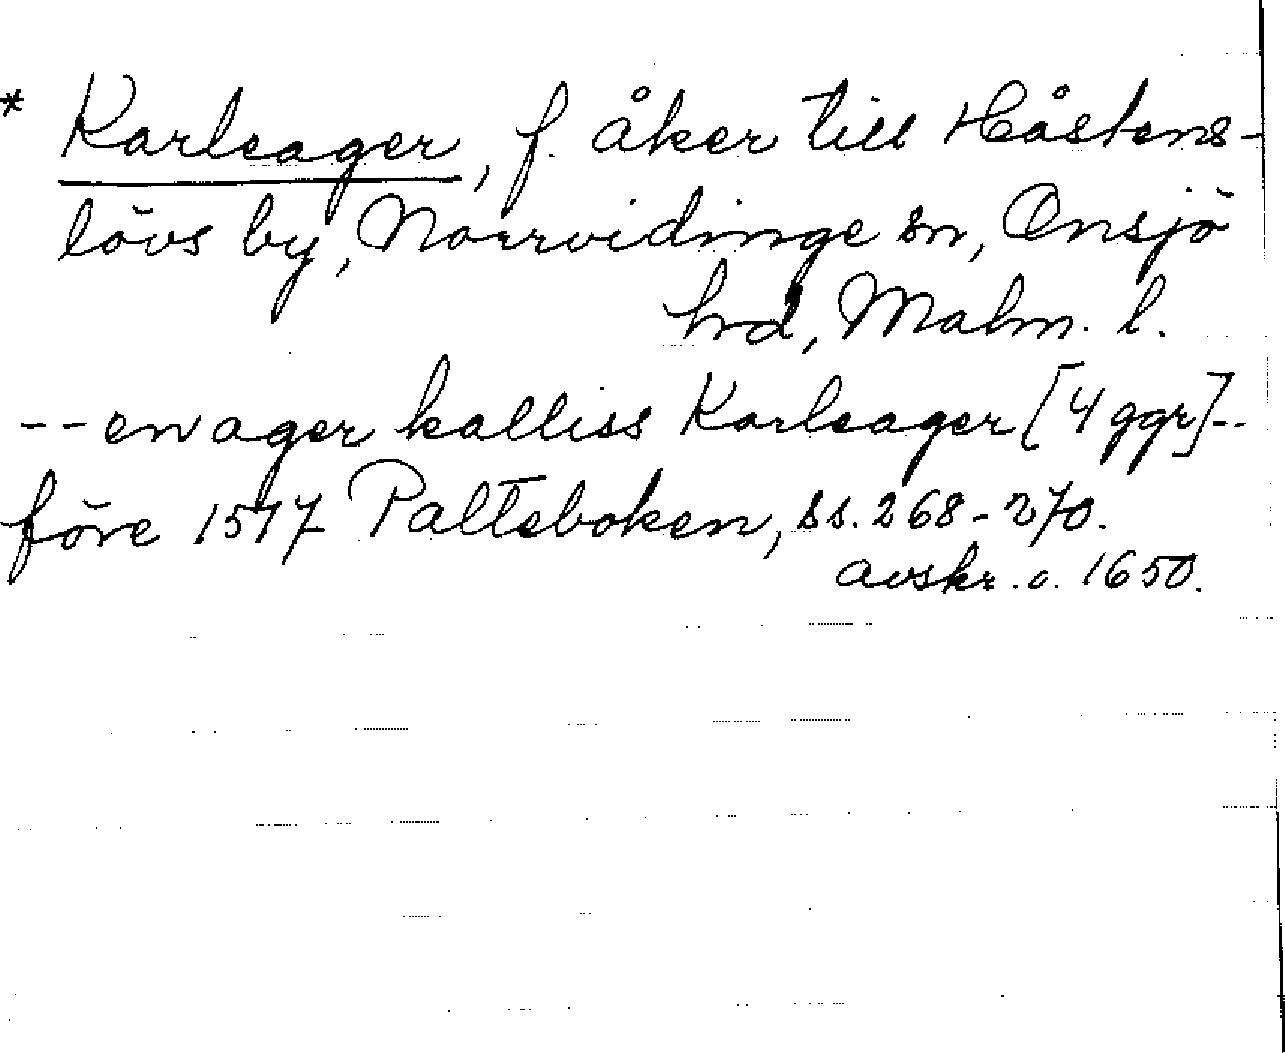 * Karleager, f. åker till Håstens-
lövs by, Norrvidinge sn, Onsjö
hrd, Malm. l.
-- en ager kalliss Karleager [4 ggr]--
före 1517 Palteboken, ss. 268-270.
avskr. o. 1650.